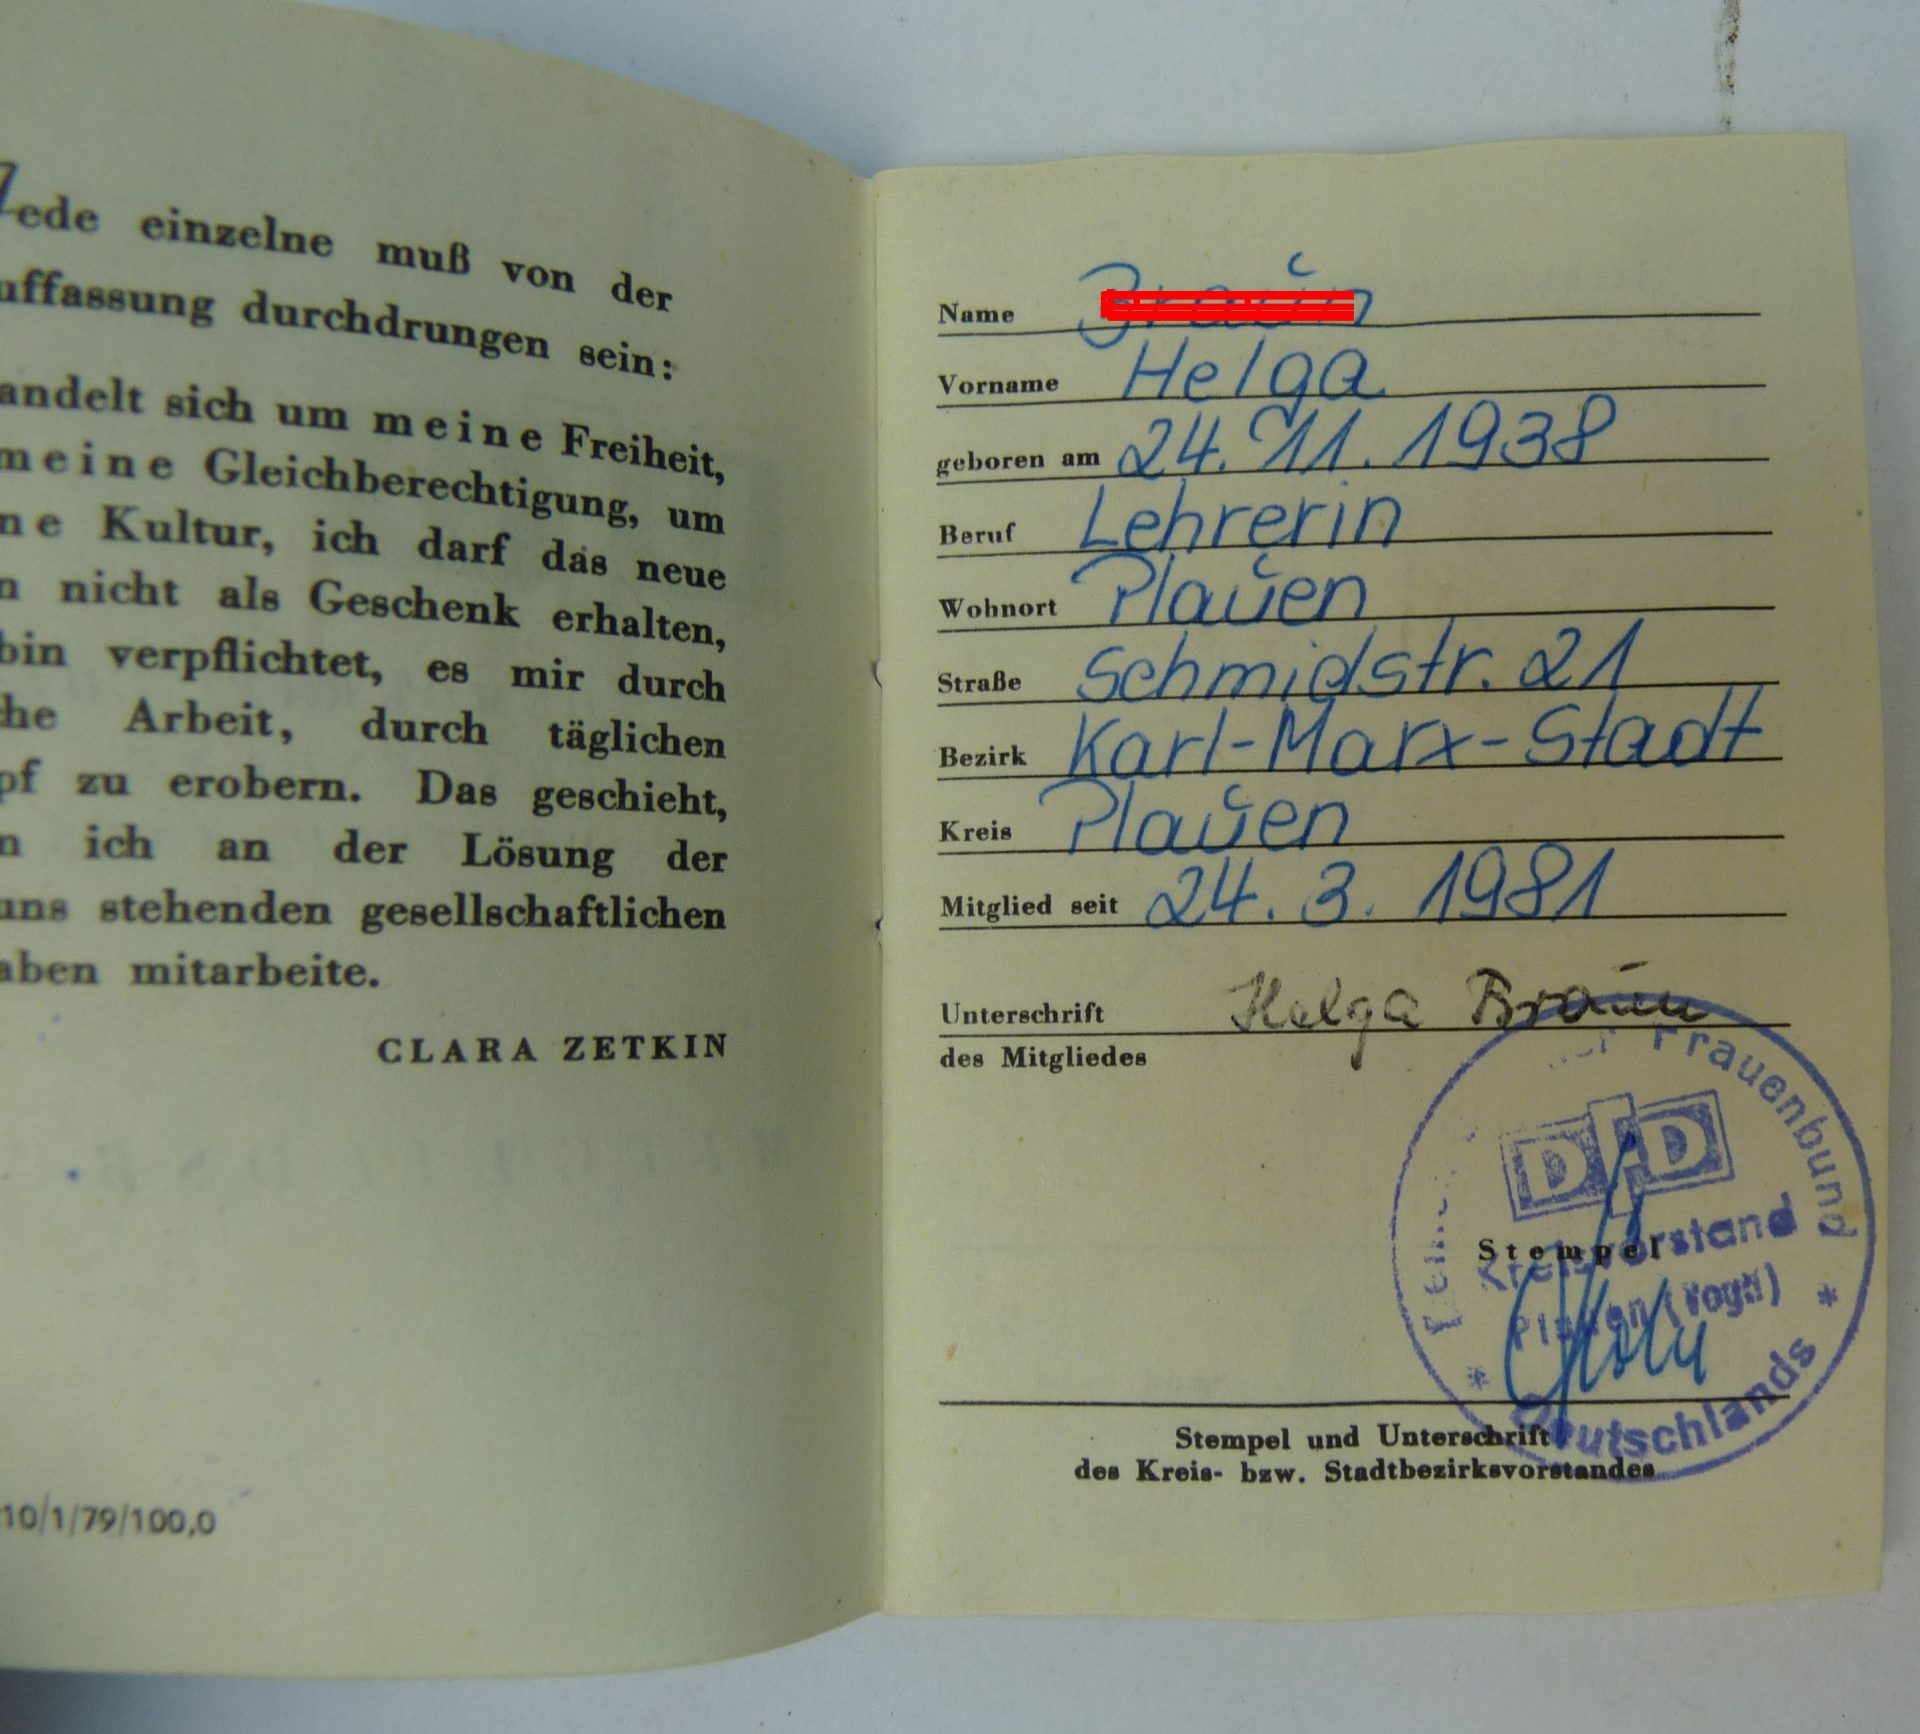 Jede einzelne muß von der
uffassung durchdrungen sein:
andelt sich um meine Freiheit,
meine Gleichberechtigung, um
ne Kultur, ich darf das neue
n nicht als Geschenk erhalten,
bin verpflichtet, es mir durch
che Arbeit, durch täglichen
pf zu erobern. Das geschieht,
n ich an der Lösung der
uns stehenden gesellschaftlichen
aben mitarbeite.
CLARA ZETKIN
10/1/79/100,0
Name
Vorname Helga
geboren am 24.11.1938
Beruf Lehrerin
Wohnort Plauen
Straße Schmidstr. 21
Bezirk Karl-Marx-Stadt
Kreis Plauen
Mitglied seit 24.3.1981
Unterschrift Helga Braun
des Mitgliedes
Frauenbund
DFD
Stempel
Kreisvorstand
Plauen (Vogtl)
Deutschlands
Stempel und Unterschrift
des Kreis- bzw. Stadtbezirksvorstandes